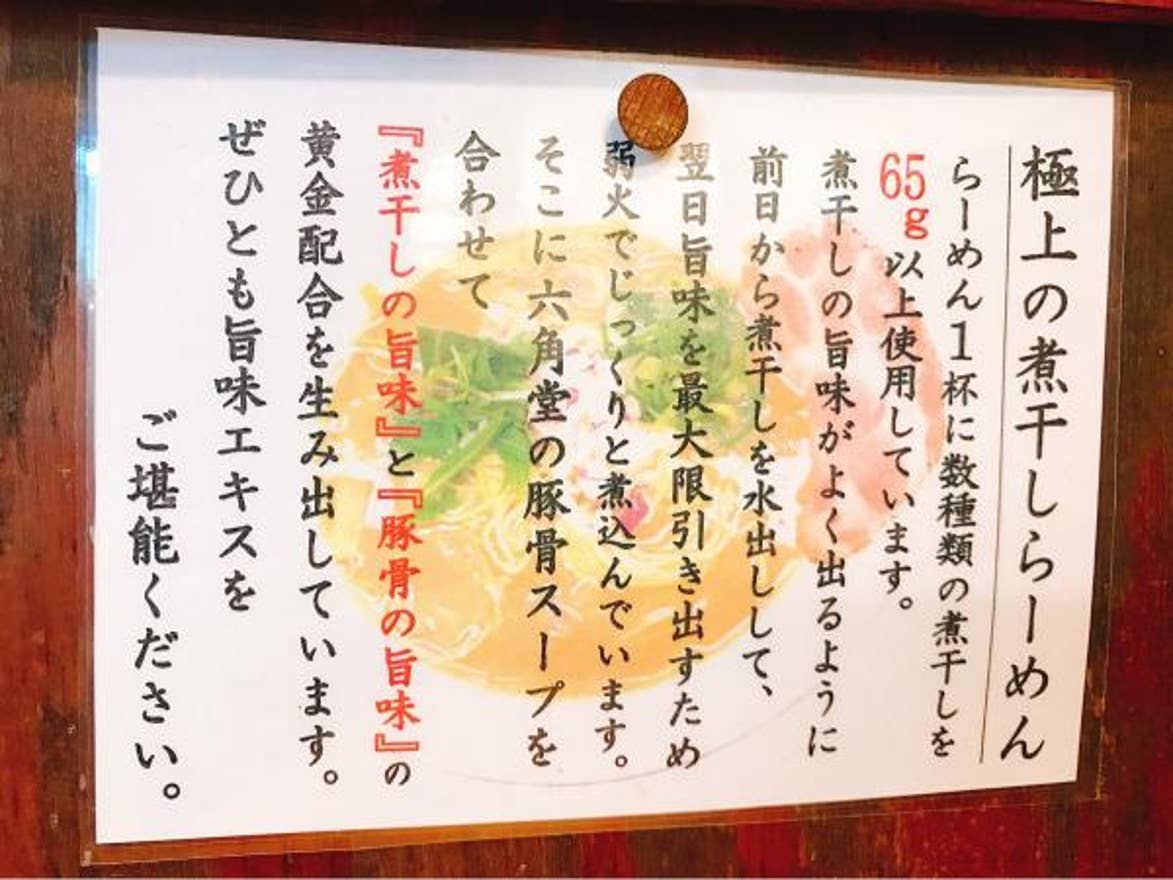 極上の煮干しらーめん
らーめん1杯に数種類の煮干しを
65g以上使用しています。
煮干しの旨味がよく出るように
前日から煮干しを水出しして、
翌日旨味を最大限引き出すため
弱火でじっくりと煮込んでいます。
そこに六角堂の豚骨スープを
合わせて
『煮干しの旨味』と『豚骨の旨味』の
黄金配合を生み出しています。
ぜひとも旨味エキスを
ご堪能ください。